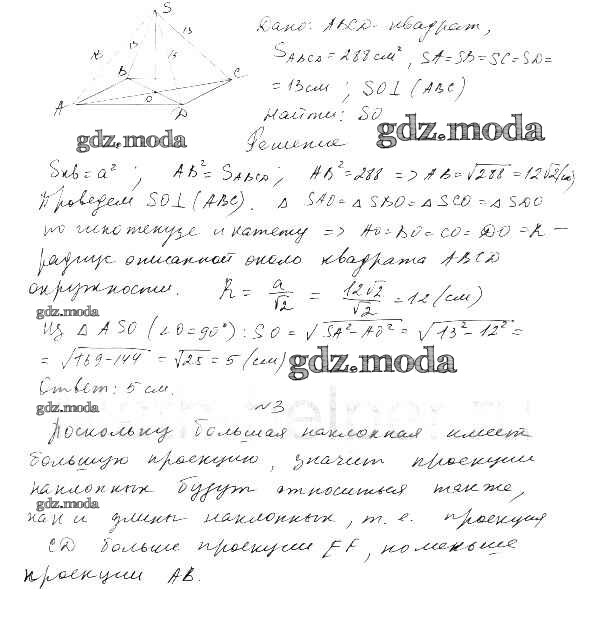 S
13 13 13 13
A B C D O
Дано: ABCD - квадрат,
S_ABCD = 288 см², SA=SB=SC=SD=
= 13 см; SO⊥(ABC)
Найти: SO
gdz.moda
gdz.moda
Решение
Sкв = a²; AB² = S_ABCD; AB² = 288 => AB = √288 = 12√2 (см)
Проведем SO⊥(ABC). Δ SAO = Δ SBO = Δ SCO = Δ SDO
по гипотенузе и катету => AO=BO=CO=DO=R –
радиус описанной около квадрата ABCD
окружности. R = a/√2 = 12√2/√2 = 12 (см)
gdz.moda
Из Δ ASO (∠O=90°): SO = √SA² - AO² = √13² - 12² =
= √169-144 = √25 = 5 (см)
gdz.moda
Ответ: 5 см.
gdz.moda
№3
Поскольку большая наклонная имеет
большую проекцию, значит проекции
наклонных будут относиться также,
gdz.moda
как и длины наклонных, т.е. проекция
CD больше проекции EF, но меньше
проекции AB.